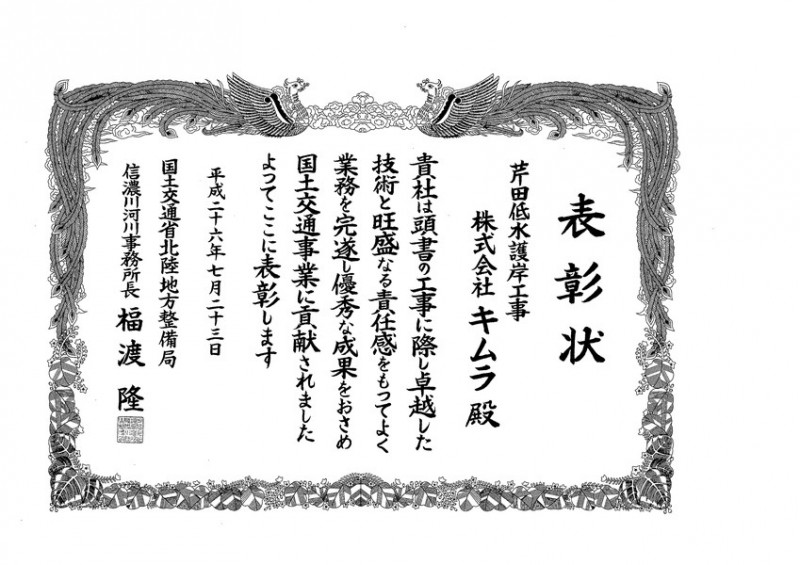 表彰状
芹田低水護岸工事
株式会社 キムラ 殿
貴社は頭書の工事に際し卓越した
技術と旺盛なる責任感をもってよく
業務を完遂し優秀な成果をおさめ
国土交通事業に貢献されました
よってここに表彰します
平成二十六年七月二十三日
国土交通省北陸地方整備局
信濃川河川事務所長 福渡 隆